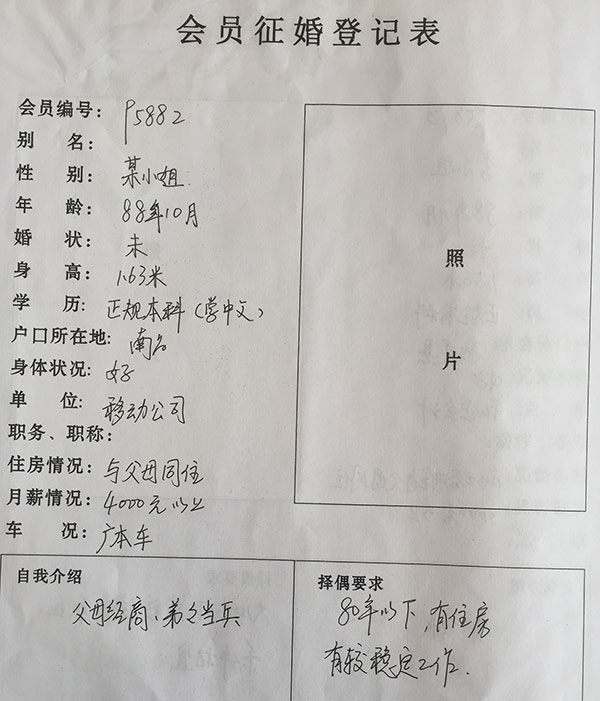 会员征婚登记表
会员编号: P5882
别 名:
性 别: 某小姐
年 龄: 88年10月
婚 状: 未
身 高: 1.63米
学 历: 正规本科(学中文)
户口所在地: 南名
身体状况: 好
单 位: 移动公司
职务、职称:
住房情况: 与父母同住
月薪情况: 4000元以上
车 况: 广本车
照
片
自我介绍
父母经商、弟弟当兵
择偶要求
80年以下,有住房
有较稳定工作.